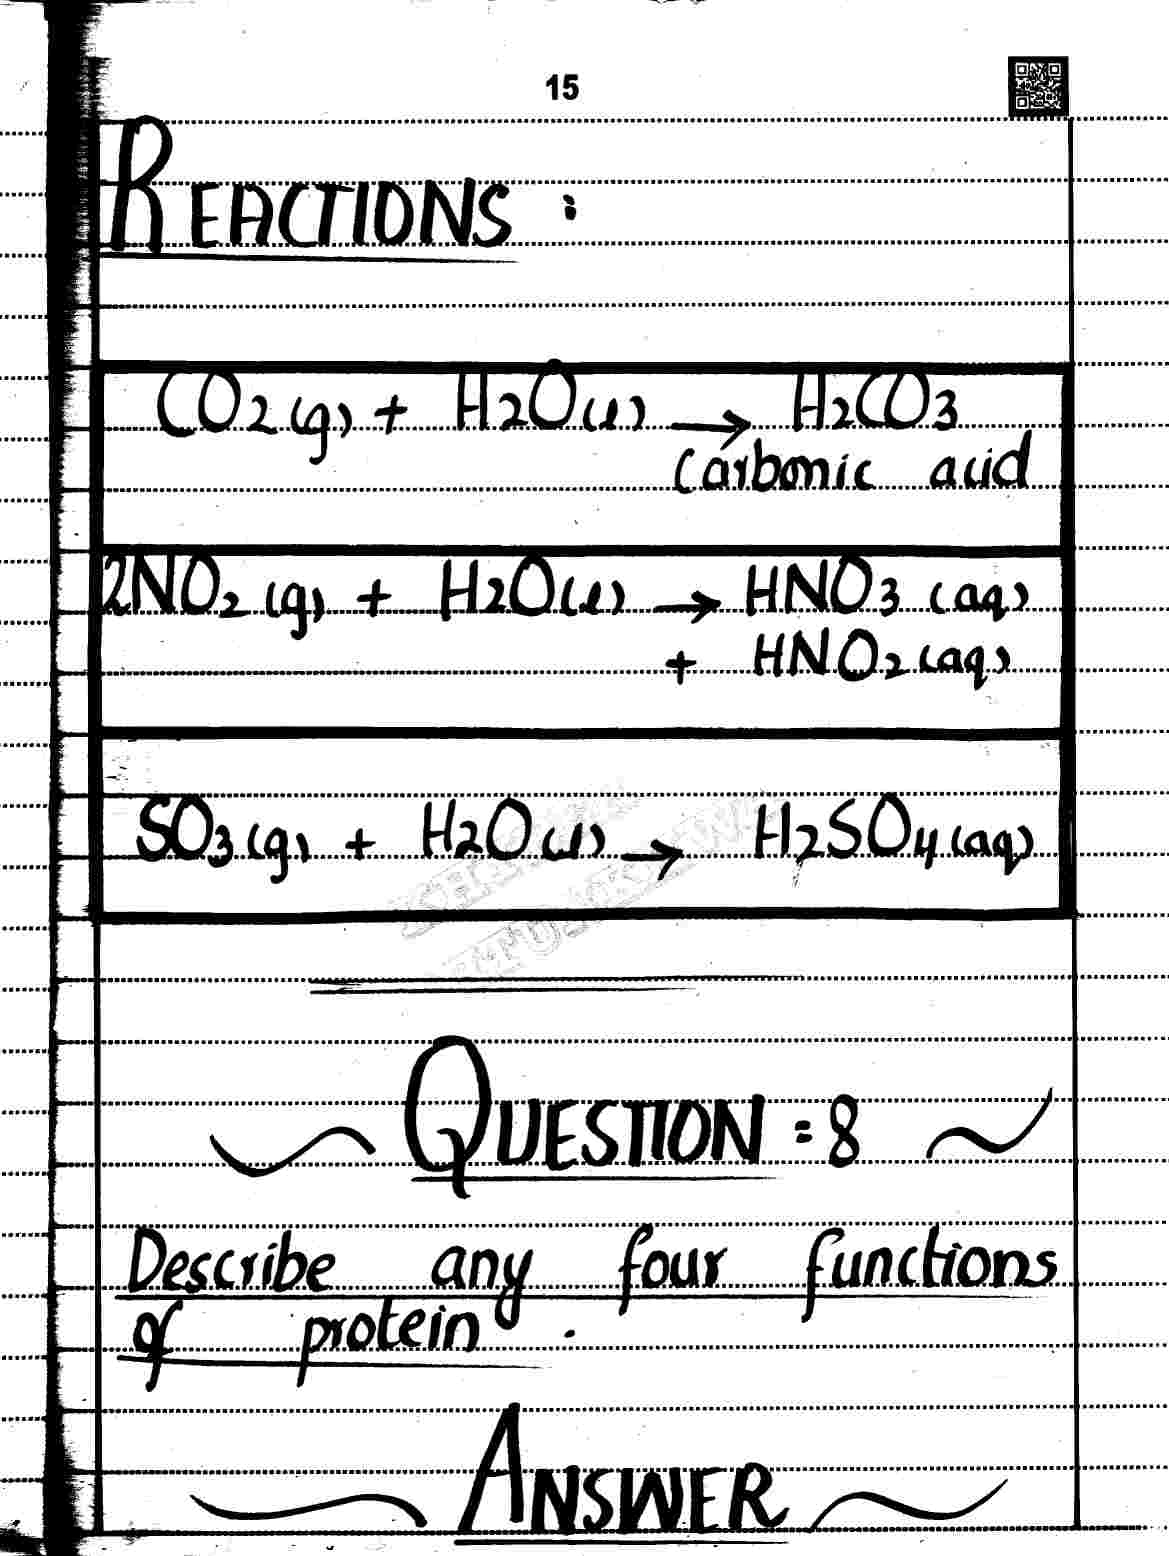 15
REACTIONS :
CO2(g) + H2O(l) → H2CO3
Carbonic acid
2NO2(g) + H2O(l) → HNO3(aq)
+ HNO2(aq)
SO3(g) + H2O(l) → H2SO4(aq)
QUESTION :8
Describe any four functions
of protein .
ANSWER